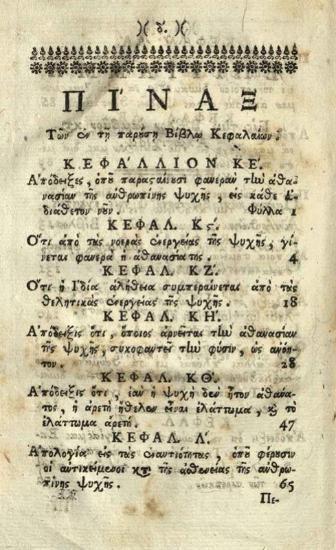 )( γ. )(
ΠΙ´ΝΑΞ
Τῶν ἐν τῇ παρούσῃ Βίβλῳ Κεφαλαίων.
ΚΕΦΑ´ΛΑΙΟΝ ΚΕ´.
Α᾿πόδειξες, ὁποῦ παραςαίνουσι φανερὰν τὴν ἀθα-
νασίαν τῆς ἀνθρωπίνης ψυχῆς, εἰς κάθε
διάθετον νοῦν. Φύλλα 1
ΚΕΦΑΛ. Κϛ´.
Ο῞τι ἀπὸ τὰς νοερὰς ἐνεργείας τῆς ψυχῆς, γί-
νεται φανερὰ ἡ ἀθανασία της. 4
ΚΕΦΑΛ. ΚΖ´.
Ο῞τι ἡ Ἰδία ἀλήθεια συμπεραίνεται ἀπὸ τὰς
θελητικὰς ἐνεργείας τῆς ψυχῆς. 18
ΚΕΦΑΛ. ΚΗ´.
Α᾿πόδειξις ὅτι, ὅποιος ἀρνεῖται τὴν ἀθανασίαν
τῆς ψυχῆς, συκοφαντεῖ τὴν φύσιν, ὡς ἀνόη-
τον. 28
ΚΕΦΑΛ. ΚΘ´.
Α᾿πόδειξις ὅτι, ἐὰν ἡ ψυχὴ δὲν ἦτον ἀθάνα-
τος, ἡ ἀρετὴ ἤθελεν εἶναι ἐλάττωμα, καὶ τὸ
ἐλάττωμα ἀρετή. 47
ΚΕΦΑΛ. Λ´.
Α᾿πολογία εἰς τὰς ἐναντιότητας, ὁποῦ φέρουσιν
οἱ ἀντικείμενοι κατὰ τῆς ἀθανασίας τῆς ἀνθρω-
πίνης ψυχῆς. 65
Πε-